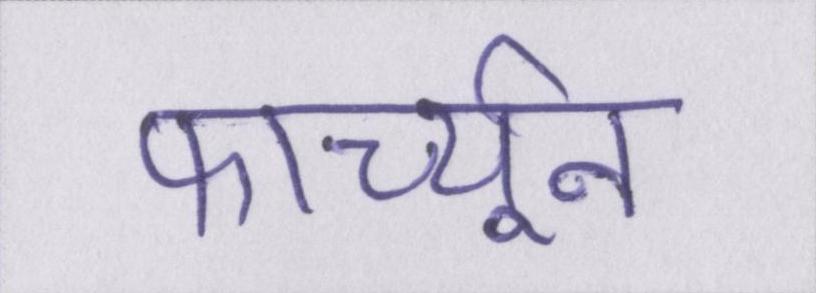 फार्च्यून